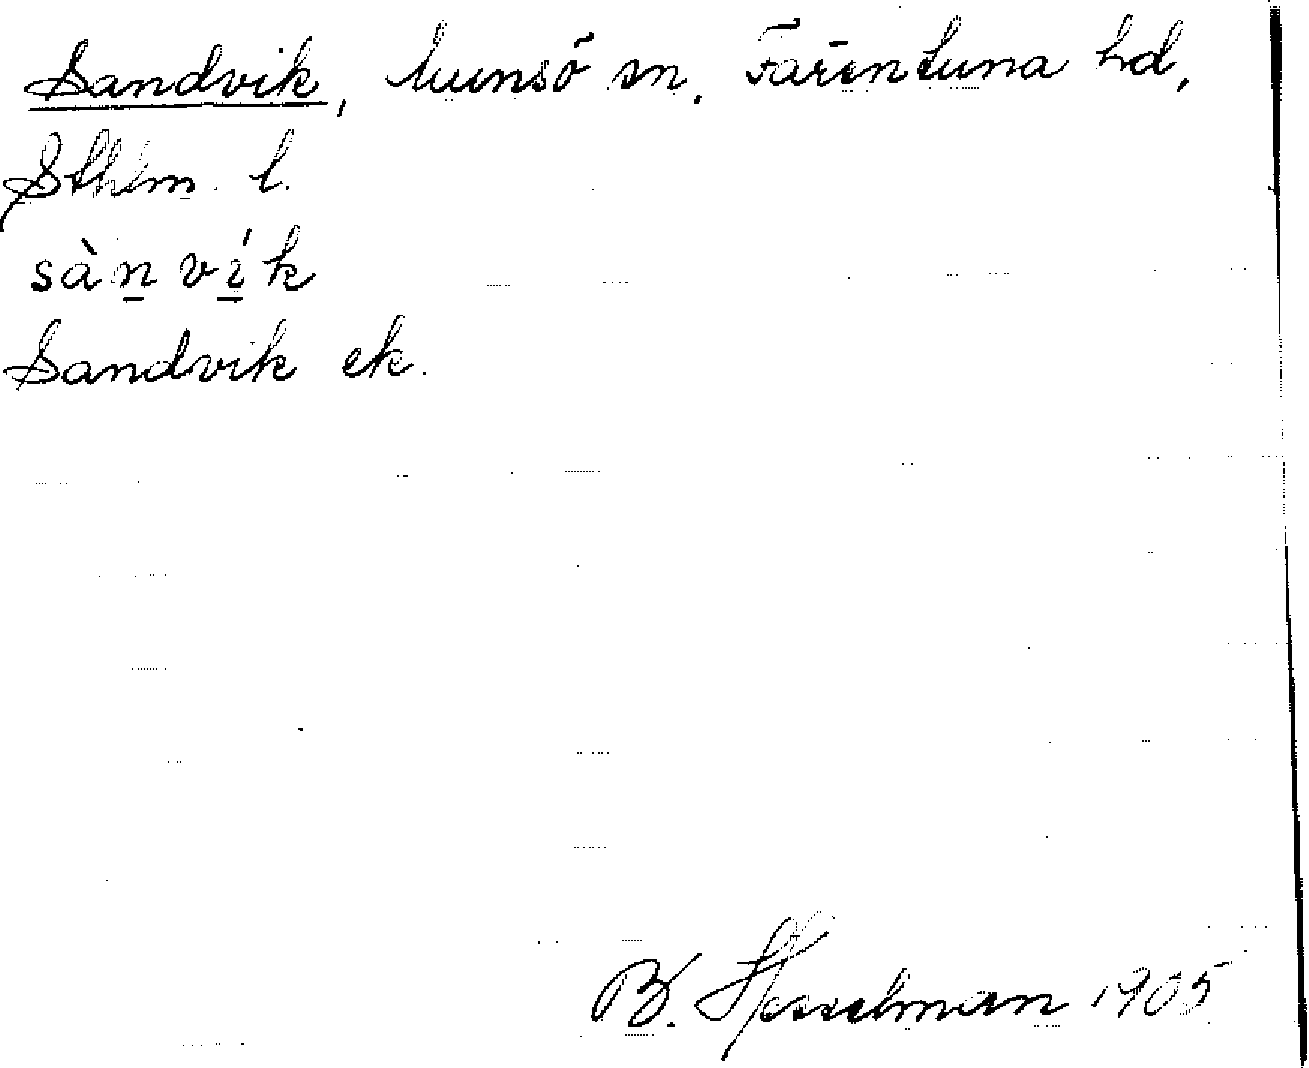 Sandvik, Munsö sn. Färentuna hd,
Sthlm. l.
sàn̲ v í̲ k
Sandvik ek.
B. Hesselman 1905